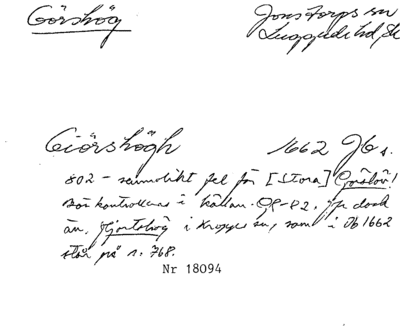 Görshög Jonstorps sn
Luggude hd, Sk
Giörshögh 1662 Jb s.
802 – sannolikt fel för [Stora] Görslöv!
bör kontrolleras i källan. OP-82. Jfr dock
än. Hjortshög i Kropps sn, som i Jb 1662
står på s. 768.
Nr 18094